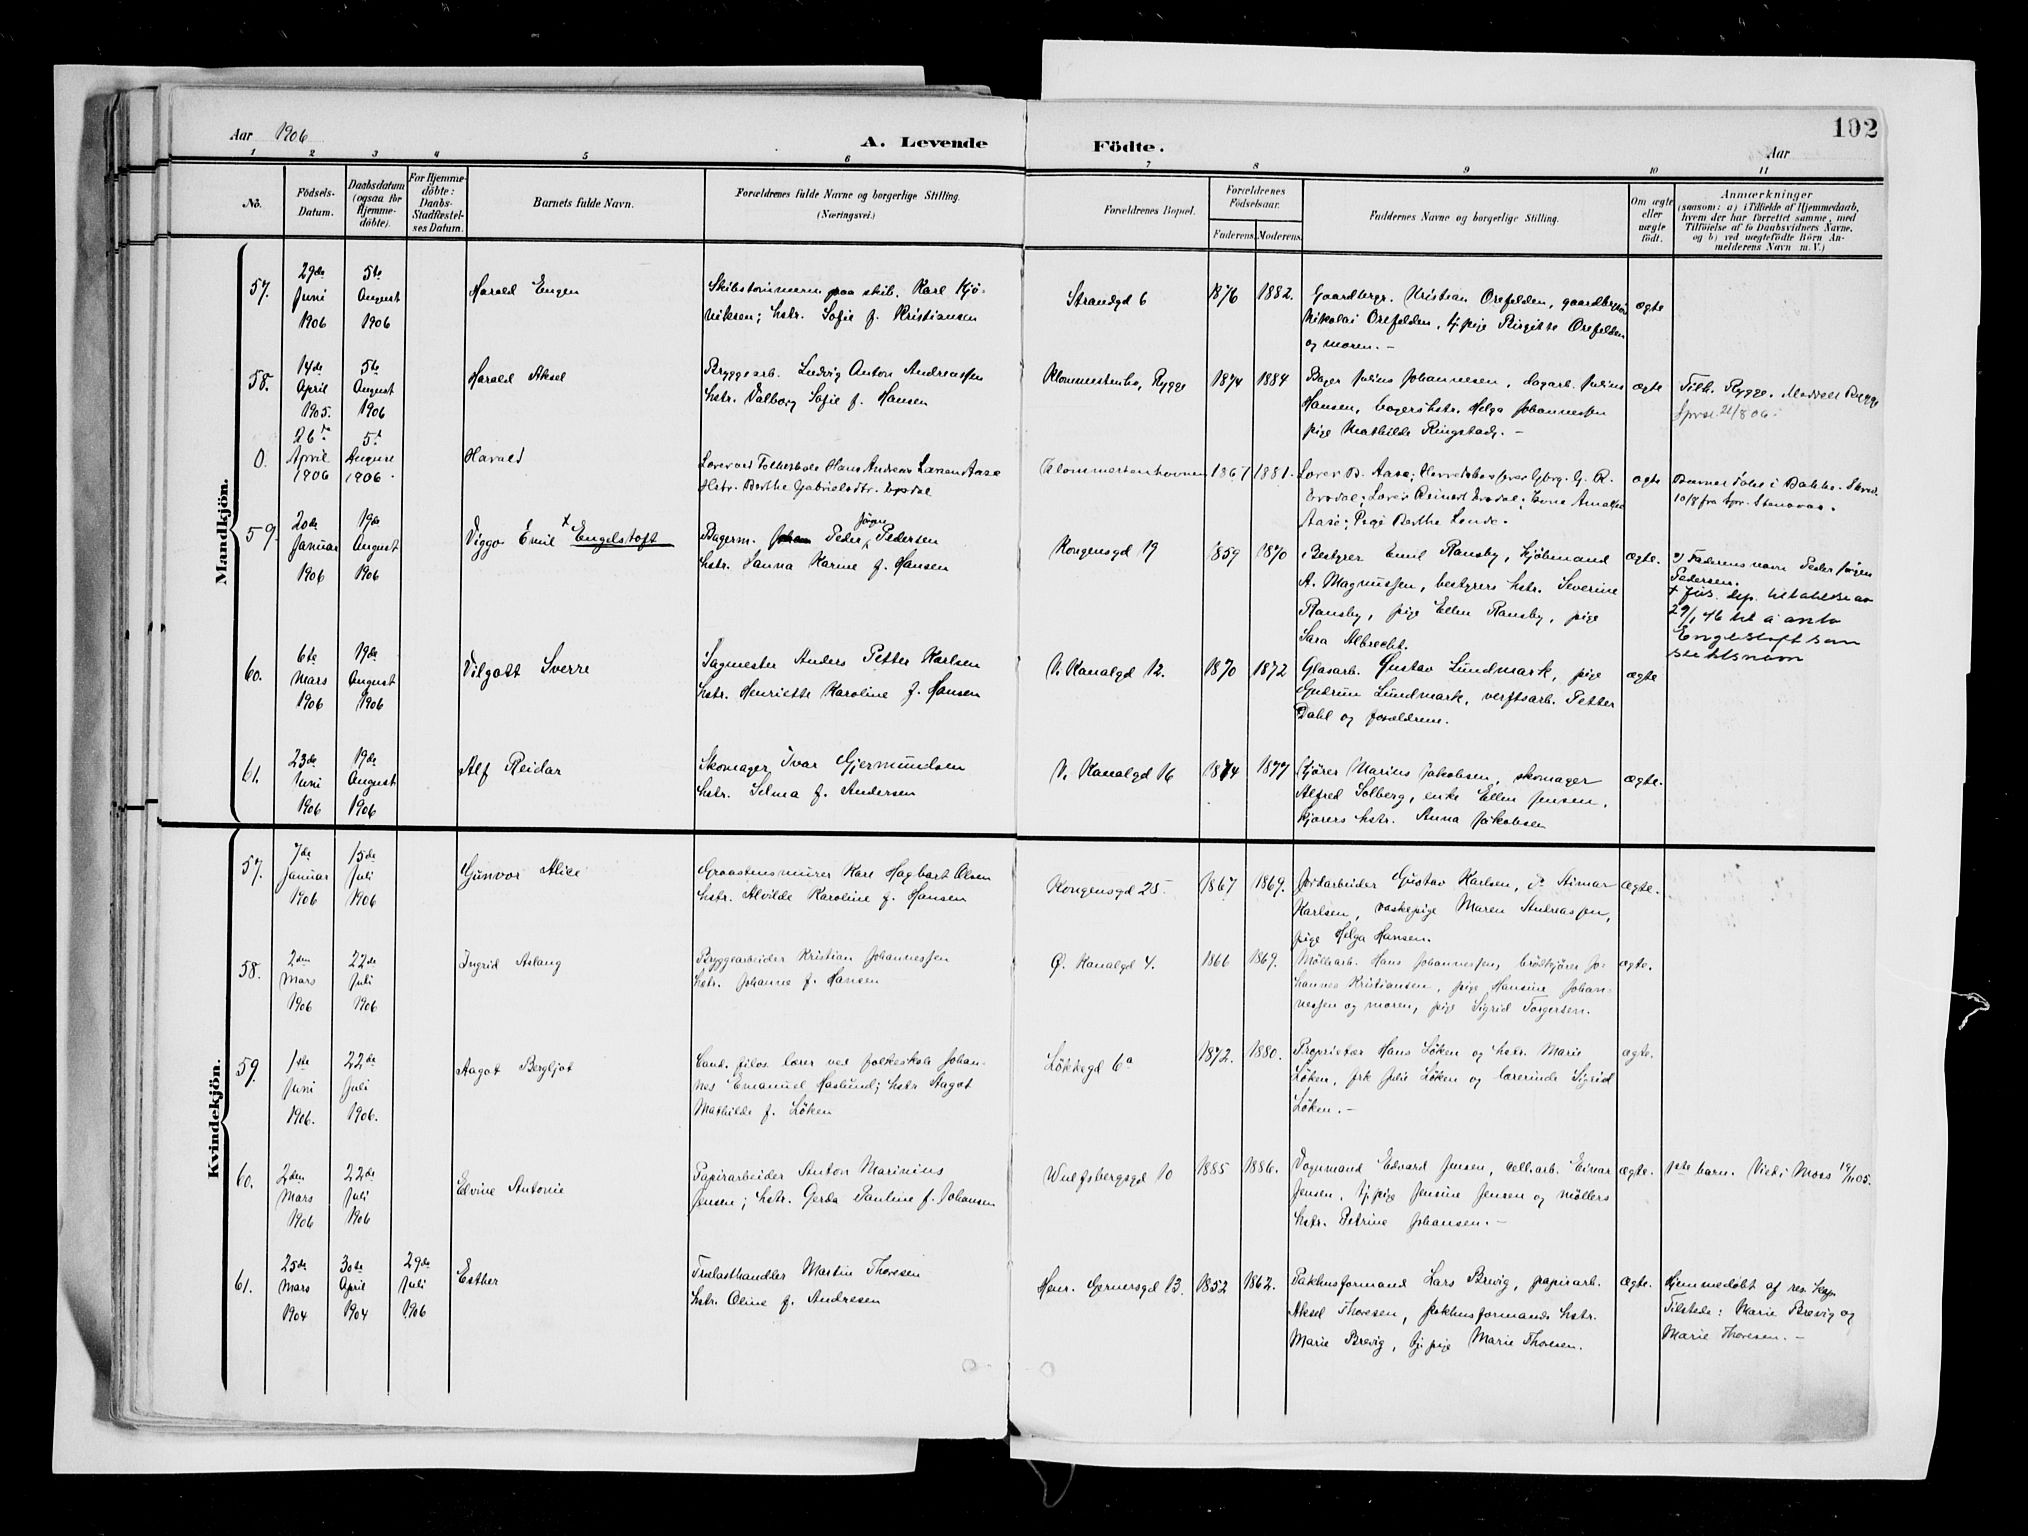 Aar 1906
A. Levende
Födte.
102
Aar
1 2 3 4 5 6 7 8 9 10 11
No.
Födsels-
Datum.
Daabsdatum
(ogsaa for
Hjemme-
döbte).
For Hjemme-
döbte:
Daabs-
Stadfæstel-
ses Datum.
Barnets fulde Navn.
Forældrenes fulde Navne og borgerlige Stilling.
(Næringsvei.)
Forældrenes Bopæl.
Forældrenes
Födselsaar.
Faderens. Moderens.
Faddernes Navne og borgerlige Stilling.
Om ægte
eller
uægte
födt.
Anmærkninger
(saasom: a) i Tilfælde af Hjemmedaab,
hvem der har forrettet samme, med
Tilföielse af to Daabsvidners Navne.
og b) ved uægtefödte Börn An-
melderens Navn m. V.)
Mandkjön.
57.
29de
Juni
1906
5te
August
1906
Harald Engen
Skibstømmerm. paa skib. Karl Kjø-
niksen; hstr. Sofie f. Kristiansen
Strandgd 6
1876
1882.
Gaardbrgr. Kristian Orefelden, gaardbruger
Nikolai Orefelden, tj. pige Birgitte Orefelden
og moren. -
ægte
58.
14de
April
1905.
5te
August
1906
Harald Aksel
Bryggearb. Ludvig Anton Andreassen
hstr. Valborg Sofie f. Hansen
Klommestenbo, Rygge
1874
1884
Bager Julius Johannesen, dagarb. Julius
Hansen, bagers hstr. Helga Johannessen
pige Mathilde Ringstad. -
ægte
Tilh. Rygge. Meddelt Rygge
Spræ. 21/8 06.
0.
26de
April
1906
5te
August
1906.
Harald
Lærer ved Folkeskole Hans Andreas Larsen Aase
Hstr. Berthe Gabrielsdtr. Ersdal
Klommestenhovnen
1867
1881.
Lærer B. Aase; Herredsbestyrer Gbrg. G. R.
Ersdal; Lærer Reinert Ersdal; Enke Amalie
Aase; Pige Berthe Lende.
ægte
Barnet døbt i Bakke. Skred.
10/8 fra Spr. Stenovas.
59.
20de
Januar
1906
19de
August
1906
Viggo Emil + Engelstoft
Bagerm. Peder Jørgen Pedersen
hstr. Hanna Karine f. Hansen
Kongensgd 19
1859
1870
Bestyrer Emil Ransby, kjøbmand
A. Magnussen, bestyrers hstr. Severine
Ransby, pige Ellen Ransby, pige
Sara Albrecht.
ægte.
2) Faderens navn Peder Jørgen
Pedersen.
+ Jus. dep. tillatelse av
29/1 46 til å anta
Engelstoft som
slektsnavn
60.
6te
Mars
1906
19de
August
1906
Vilgott Sverre
Sagmester Anders Petter Karlsen
hstr. Henriette Karoline f. Hansen
V. Kanalgd 12.
1870
1872
Glasarb. Gustav Lundmark, pige
Gudrun Lundmark, verftsarb. Petter
Dahl og forældrene.
ægte
61.
23de
Juni
1906
19de
August
1906
Alf Reidar
Skomager Ivar Gjermundsen
hstr. Selma f. Andersen
V. Kanalgd 16
1874
1877
Kjører Marius Jakobsen, skomager
Alfred Solberg, enke Ellen Jensen,
kjørers hstr. Anna Jakobsen
ægte.
Kvindekjön.
57.
7de
Januar
1906
15de
Juli
1906
Gunvor Alice
Graastensmurer Karl Hagbart Olsen
hstr. Alvilde Karoline f. Hansen
Kongensgd 25.
1867
1869.
Jordarbeider Gustav Karlsen, do Stimar
Karlsen, vaskepige Maren Andreassen,
pige Helga Hansen.
ægte.
58.
2den
Mars
1906
22de
Juli
1906
Ingrid Aslaug
Bryggearbeider Kristian Johannessen
hstr. Johanne f. Hansen
Ø. Kanalgd 4.
1866
1869.
Møllearb. Hans Johannessen, brødkjører Jo-
hannes Kristiansen, pige Hansine Johan-
nessen og moren, pige Sigrid Torgersen.
ægte.
59.
1ste
Juni
1906.
22de
Juli
1906.
Aagot Bergljot
Cand. filos. lærer ved folkeskole Johan-
nes Emanuel Haslund; hstr. Aagot
Mathilde f. Løken
Løkkegd 6a
1872.
1880.
Proprietær Hans Løken og hstr. Marie
Løken, frk Julie Løken og lærerinde Sigrid
Løken. -
ægte.
60.
2den
Mars
1906
22de
Juli
1906
Edvine Antonie
Papirarbeider Anton Marinius
Jensen; hstr. Gerda Pauline f. Johansen
Wulfsbergsgd 10
1885
1886.
Vognmand Edvard Jensen, cell. arb. Einar
Jensen, tj. pige Jensine Jensen og møllers
hstr. Petrine Johansen. -
ægte.
1ste barn. Viet i Moss 19/11 05.
61.
25de
Mars
1904
30te
April
1904
29de
Juli
1906
Esther
Trælasthandler Martin Thoresen
hstr. Oline f. Andresen
Henr. Gerners gd 13.
1852
1862.
Pakhusformand Lars Brevig, papirarb.
Aksel Thoresen, pakhusformands hstr.
Marie Brevig, tj. pige Marie Thoresen.
ægte.
Hjemmedøbt af res. kap.
Tilstede: Marie Brevig og
Marie Thoresen. -